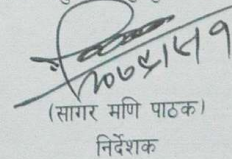 (सागर मणि पाठक)
निर्देशक